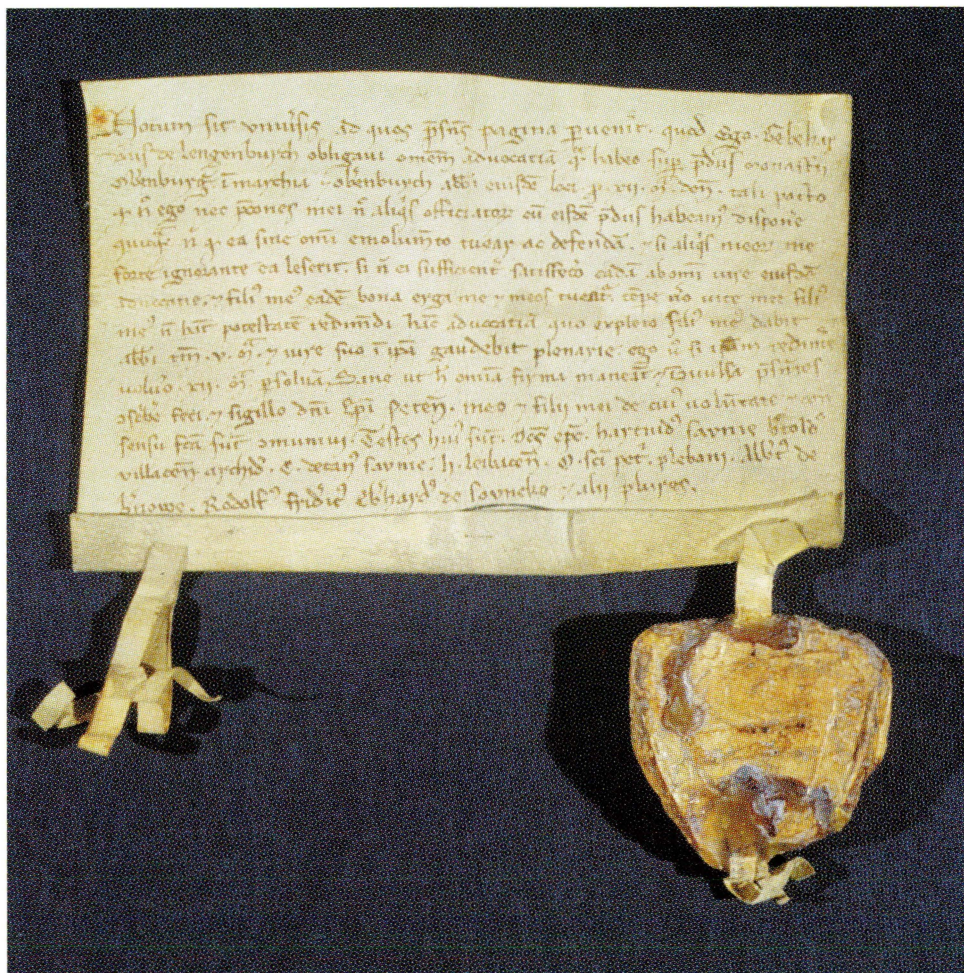 Notum sit vniũsis ad quos p̃sñs pagina ꝑuenĩt. quod Ego. Gebehar
dus de lengenburch obligaui omem̃ aduocatiã q̃ habeo suꝑ p̃dijs monastĩi
Obẽnburg̃ ĩ marchia ⁊ Obẽnburch abb̃i eiusdẽ loci .p. xii. m̃. deñ. tali pacto
ꝙ ñ ego nec p̃cones mei ñ aliq̃s officiatoꝝ eũ eisdẽ p̃dijs habeam⁹ dispoñe
quicq̃ ñ ꝙ ea sine omi emolum̃to tuear ac defendã. ⁊ si aliq̃s meoꝝ me
forte ignorante ea leserit. si ñ ei sufficient̃ eadẽ ab omi iure eiusdẽ
aduocatie. ⁊ fili⁹ me⁹ eadẽ bona erga me ⁊ meos tueat̃. tẽpe ṽo uite mee fili⁹
me⁹ ñ hãt potestatẽ redimẽdi hãc aduocatiã quo expleto fili⁹ me⁹ dabit
abb̃i tm̃. v. m̃. ⁊ iure suo ĩ ip̃a gaudebit plenarie. ego ũ si redimẽ
uoluẽo. xii. m̃. ꝑsoluã. Sane ut h̃ omĩa firma maneãt
feci. ⁊ sigillo dñi meo ⁊ filii mei de cui⁹ uolũtate ⁊ con
sensu fc̃a sũt omuniui. Testes hui⁹ sũt. hartuid⁹ savnie b̃told⁹
villaceñ. archid̃. C. decan⁹ savnie. h. leibaceñ. O. sc̃i pet̃. plebani. Alb̃t⁹ de
Rodolf⁹ frid̃ic⁹ Eb̃hard⁹ de sovneke ⁊ alii plures.